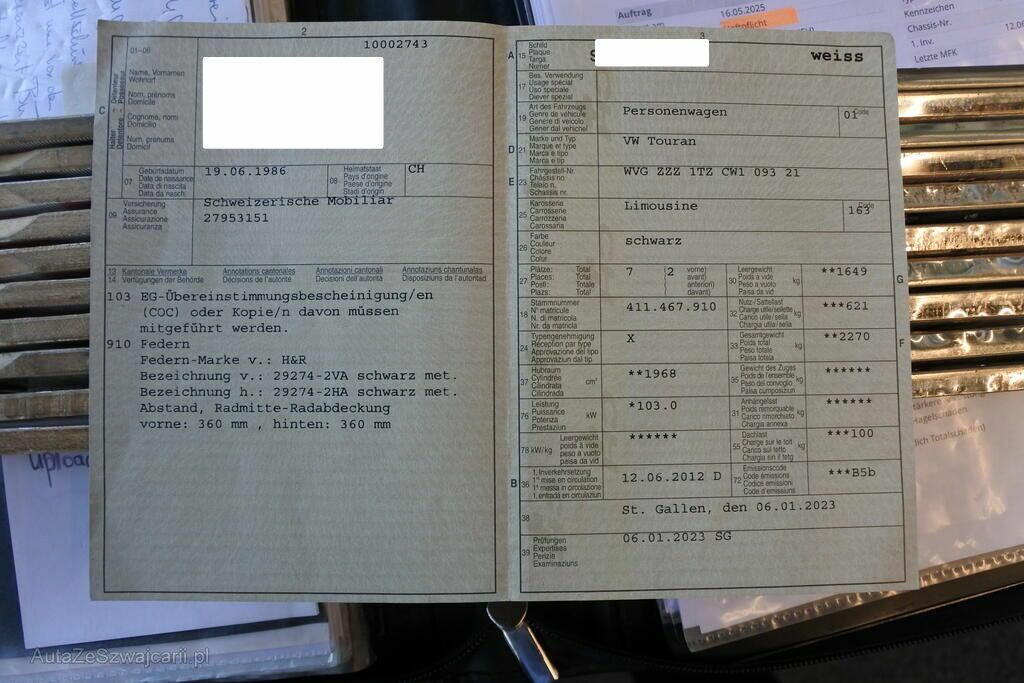 Auftrag
16.05.2025
Haftpflicht
Kennzeichen
Chassis-Nr.
1. Inv.
Letzte MFK
2
10002743
01-06
Name, Vornamen
Wohnort
Nom, prénoms
Domicile
Cognome, nomi
Domicilio
Num, prenums
Domicil
C
Halter
Détenteur
Detentore
Possessur
07
Geburtsdatum
Date de naissance
Data di nascita
Data da nasch.
19.06.1986
08
Heimatstaat
Pays d'origine
Paese d'origine
Stadi d'origin
CH
09
Versicherung
Assurance
Assicurazione
Assicuranza
Schweizerische Mobiliar
27953151
13
14
Kantonale Vermerke
Verfügungen der Behörde
Annotations cantonales
Décisions de l'autorité
Annotazioni cantonali
Decisioni dell'autorità
Annotaziuns chantunalas
Disposiziuns da l'autoritad
103 EG-Übereinstimmungsbescheinigung/en
(COC) oder Kopie/n davon müssen
mitgeführt werden.
910 Federn
Federn-Marke v.: H&R
Bezeichnung v.: 29274-2VA schwarz met.
Bezeichnung h.: 29274-2HA schwarz met.
Abstand, Radmitte-Radabdeckung
vorne: 360 mm , hinten: 360 mm
3
A
15
Schild
Plaque
Targa
Numer
S
weiss
17
Bes. Verwendung
Usage spécial
Uso speciale
Diever spezial
19
Art des Fahrzeugs
Genre de véhicule
Genere di veicolo
Gener dal vehichel
Personenwagen
01
Code
D
21
Marke und Typ
Marque et type
Marca e tipo
Marca e tip
VW Touran
E
23
Fahrgestell-Nr.
Châssis no
Telaio n.
Schassis nr.
WVG ZZZ 1TZ CW1 093 21
25
Karosserie
Carrosserie
Carrozzeria
Carossaria
Limousine
Code
163
26
Farbe
Couleur
Colore
Colur
schwarz
27
Plätze: Total
Places: Total
Posti: Totale
Plazs: Total
7
2
vorne)
avant)
anteriori)
davant)
30
Leergewicht
Poids à vide
Peso a vuoto
Paisa da vid
kg
**1649
G
18
Stammnummer
N° matricule
N. di matricola
Nr. da matricla
411.467.910
32
Nutz-/Sattellast
Charge utile/sellette
Carico utile/sella
Chargia utila/sella
kg
***621
24
Typengenehmigung
Réception par type
Approvazione del tipo
Approvaziun dal tip
X
33
Gesamtgewicht
Poids total
Peso totale
Paisa totala
kg
**2270
F
37
Hubraum
Cylindrée
Cilindrata
Cilindrada
cm³
**1968
35
Gewicht des Zuges
Poids de l'ensemble
Peso del convoglio
Paisa cumposiziun
kg
******
76
Leistung
Puissance
Potenza
Prestaziun
kW
*103.0
31
Anhängelast
Poids remorquable
Carico rimorchiato
Chargia annexa
kg
******
78 kW/kg
Leergewicht
poids à vide
peso a vuoto
paisa da vid
******
55
Dachlast
Charge sur le toit
Carico sul tetto
Chargia sin il tetg
kg
***100
B
36
1. Inverkehrsetzung
1re mise en circulation
1a messa in circolazione
1. entrada en circulaziun
12.06.2012 D
72
Emissionscode
Code émissions
Codice emissioni
Code d'emissiuns
***B5b
38
St. Gallen, den 06.01.2023
39
Prüfungen
Expertises
Perizie
Examinaziuns
06.01.2023 SG
Hagelschäden
lich Totalschaden)
AutaZeSzwajcarii.pl